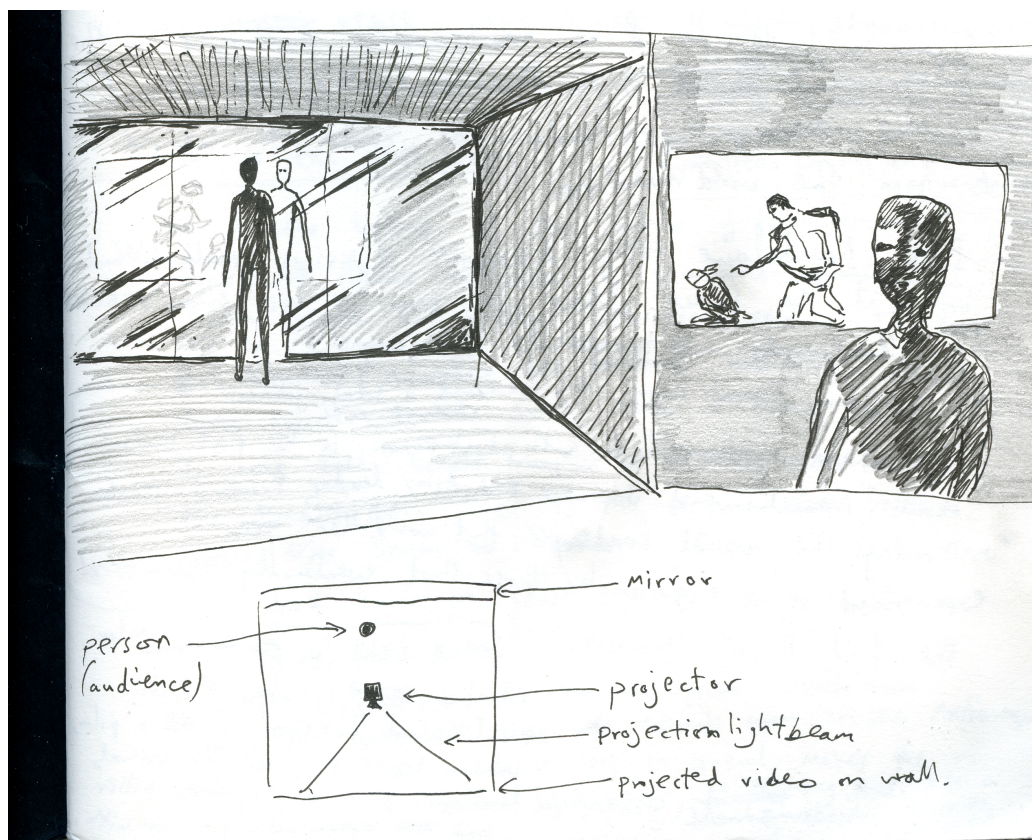 Mirror
person
(audience)
projector
projection lightbeam
projected video on wall.